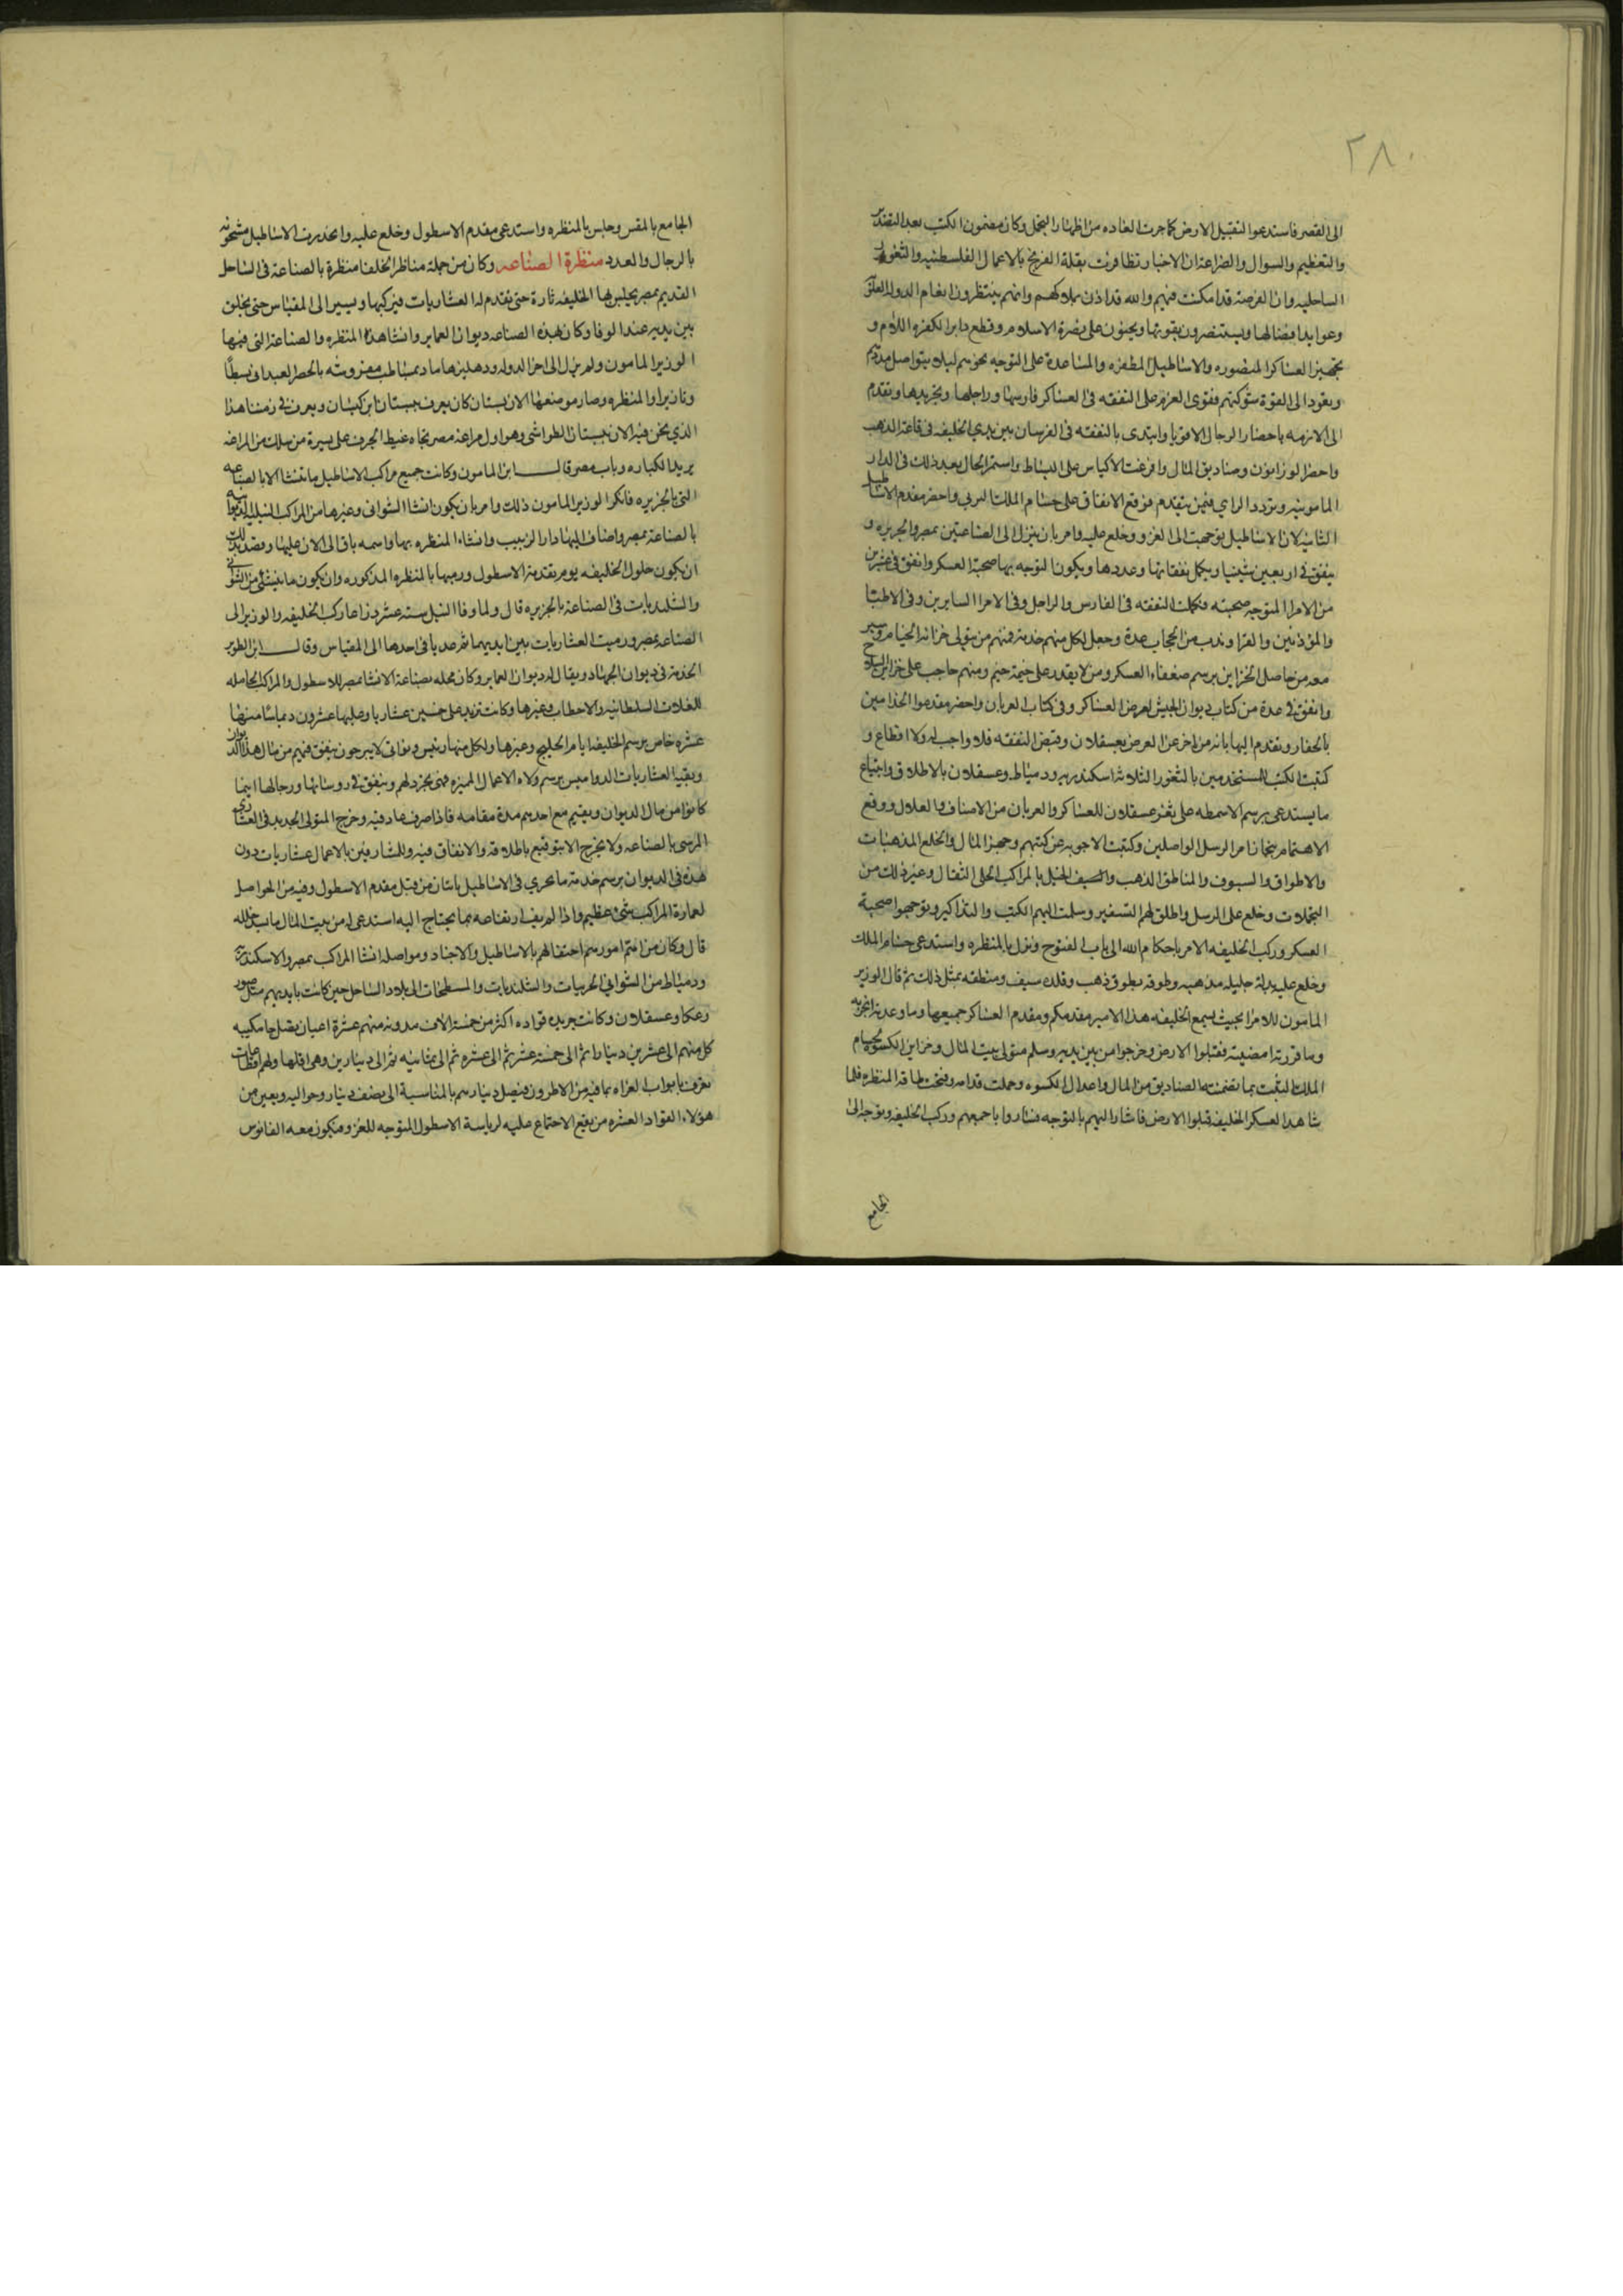 ٢٨٠
الى القصر فاستدعوا لتقبيل الارض كما جرت العاده من اظهار التجمل وكان مضمون الكتب بعد التصدير
والتعظيم والسوال والضراعة ان الاخبار تظافرت بقلة الفرنج بالاعمال الفلسطينيه والثغور
الساحليه وان الفرصة قد امكنت فيهم والله قد اذن بهلاكهم وانهم ينتظرون انعام الدولة العلويه
وعوايد افضالها ويستنصرون بقوتها ويحثون على نصرة الاسلام وقطع دابر الكفره اللئام و
تجهيز العساكر المنصوره والاساطيل المظفره والمساعدة على التوجه نحوهم ليلا يتواصل مددهم
وتعود الى القوة شوكتهم فقوى العزم على النفقه في العساكر فارسها وراجلها وتجريدها وتقدم
الى الازمه باحضار الرجال الاقويا وابتدى بالنفقه في الفرسان بين يدي الخليفه في قاعة الذهب
واحضر الوزانون وصناديق المال وافرغت الاكياس على البساط واستمر الحال بعد ذلك في الدار
المامونيه وتردد الراي فيمن يتقدم فوقع الاتفاق على حسام الملك البرني واحضر مقدم الاساطيل
الثانيه لان الاساطيل توجهت الى الغزو وخلع عليه وامر بان ينزل الى الصناعتين بمصر والجزيره و
ينفق في اربعين شينيا ويكمل نفقاتها وعددها ويكون التوجه بها صحبة العسكر وانفق في عشرين
من الامرا المتوجه صحبته فكملت النفقه في الفارس والراجل وفي الامرا السايرين وفي الاطبا
والمؤذنين والقرا وندب من الحجاب عدة وجعل لكل منهم خدمة فمنهم من يتولى خزانة الخيام وسير
معه من حاصل الخزاين برسم ضعفاء العسكر ومن لا يقدر على خيمة خيم ومنهم حاجب على خزاين السلاح
وانفق في عدة من كتاب ديوان الجيش لعرض العساكر وفي كتاب العربان واحضر مقدموا الحذاميين
بالحفار وتقدم اليها بانه من تاخر عن العرض بعسقلان وقبض النفقه فلا واجب له ولا اقطاع و
كتبت الكتب للمستخدمين بالثغور الثلاثة اسكندريه ودمياط وعسقلان بالاطلاق وابتياع
ما يستدعى برسم الاسمطه على ثغر عسقلان للعساكر والعربان من الاصناف والغلال ووقع
الاهتمام بنجاز امر الرسل الواصلين وكتبت الاجوبه عن كتبهم وجهز المال والخلع المذهبات
والاطواق والسيوف والمناطق الذهب والخيل بالمراكب الحلى الثقال وغير ذلك من
التجملات وخلع على الرسل واطلق لهم التسفير وسلمت اليهم الكتب والتذاكير وتوجهوا صحبة
العسكر وركب الخليفه الامر باحكام الله الى باب الفتوح ونزل بالمنظره واستدعى حسام الملك
وخلع عليه بدلة جليله مذهبه وطوقه بطوق ذهب وقلده سيف ومنطقه بمثل ذلك ثم قال الوزير
المامون للامرا بحيث يسمع الخليفه هذا الامير مقدمكم ومقدم العساكر جميعها وما وعد به انجزته
وما قرره امضيته فقبلوا الارض وخرجوا من بين يديه وسلم متولى بيت المال وخزاين الكسوة لحسام
الملك الثبت بما تضمنته الصناديق من المال واعدال الكسوه وحملت قدامه وفتحت طاقة المنظره فلما
شاهد العسكر الخليفه قبلوا الارض فاشار اليهم بالتوجه فساروا باجمعهم وركب الخليفه وتوجه الى
الجامع
الجامع بالمقس وجلس بالمنظره واستدعى مقدم الاسطول وخلع عليه وانحدرت الاساطيل مشحونه
بالرجال والعدد منظرة الصناعه وكان من جملة مناظر الخلفا منظرة بالصناعة في الساحل
القديم بمصر يجلس بها الخليفه تارة حتى تقدم له العشاريات فيركبها ويسير الى المقياس حتى يخلق
بين يديه عند الوفا وكان بهذه الصناعه ديوان العماير وانشا هذه المنظره والصناعة التي فيها
الوزير المامون ولم يزل الى اخر الدوله ودهليزها ماد بمساطب مفروشه بالحصر العبداني بسطا
وتازيرا والمنظره وصار موضعها الان بستان كان يعرف ببستان ابن كيسان ويعرف في زمننا هذا
الذي نحن فيه الان ببستان الطواشي وهو اول مراغة مصر تجاه غيط الجرف على يسرة من سلك من المراغه
يريد الكباره وباب مصر قال ابن المامون وكانت جميع مراكب الاساطيل ما تنشا الا بالصناعه
التي بالجزيره فانكر الوزير المامون ذلك وامر بان يكون انشا الشواني وغيرها من المراكب النيليه الديوانيه
بالصناعة بمصر واضاف اليها دار الزبيب وانشاء المنظره بها واسمه باق الى الان عليها وقصد بذلك
ان يكون حلول الخليفه يوم تقدمة الاسطول ورميها بالمنظره المذكوره وان يكون ما ينشئ من الشواني
والشلنديات في الصناعة بالجزيره قال ولما وفا النيل ستة عشر ذراعا ركب الخليفه والوزير الى
الصناعه بمصر ورميت العشاريات بين ايديهما ثم عديا في احدها الى المقياس وقال ابن الطوير
الخدمة في ديوان الجهاد ويقال له ديوان العماير وكان محله بصناعة الانشا بمصر للاسطول والمراكب الحامله
للغلات السلطانيه والاحطاب وغيرها وكانت تزيد على خمسين عشاريا وعليها عشرون ديماسا منها
عشره خاص برسم الخليفه ايام الخليج وغيرها ولكل منها رئيس ونواتي لا يبرحون ينفق فيهم من مال هذا الديوان
وبقية العشاريات الدواميس برسم ولاه الاعمال المميزه فهي تجرد لهم وينفق في روسائها ورجالها اينما
كانوا من مال الديوان ويقيم مع احدهم مدة مقامه فاذا صرف عاد فيه وخرج المتولى الجديد في العشاري
المرسى بالصناعه ولا يخرج الا بتوقيع باطلاقه والانفاق فيه وللمشارفين بالاعمال عشاريات دون
هذه في الديوان برسم خدمة ما يجري في الاساطيل باثنان من قبل مقدم الاسطول وفيه من الحواصل
لعمارة المراكب شئ عظيم واذا لم يف ارتفاعه بما يحتاج اليه استدعى له من بيت المال ما يسد خلله
قال وكان من اهتم امورهم احتفالهم بالاساطيل والاجناد ومواصلة انشا المراكب بمصر والاسكندريه
ودمياط من الشواني الحربيات والشلنديات والمسطحات الى بلاد الساحل حين كانت بايديهم مثل صور
وعكا وعسقلان وكانت جريدة قواده اكثر من خمسة الاف مدونه منهم عشرة اعيان يصل جامكيه
كل منهم الى عشرين دينارا ثم الى خمسة عشر ثم الى عشره ثم الى ثمانيه ثم الى دينارين وهي اقلها ولهم اقطاعات
تعرف بابواب الغزاه بما فيه من الاطرون فيصل دينارهم بالمناسبة الى نصف دينار وحواليه ويعين من
هؤلاء القواد العشره من يقع الاجتماع عليه لرياسة الاسطول المتوجه للغزو فيكون معه الفانوس